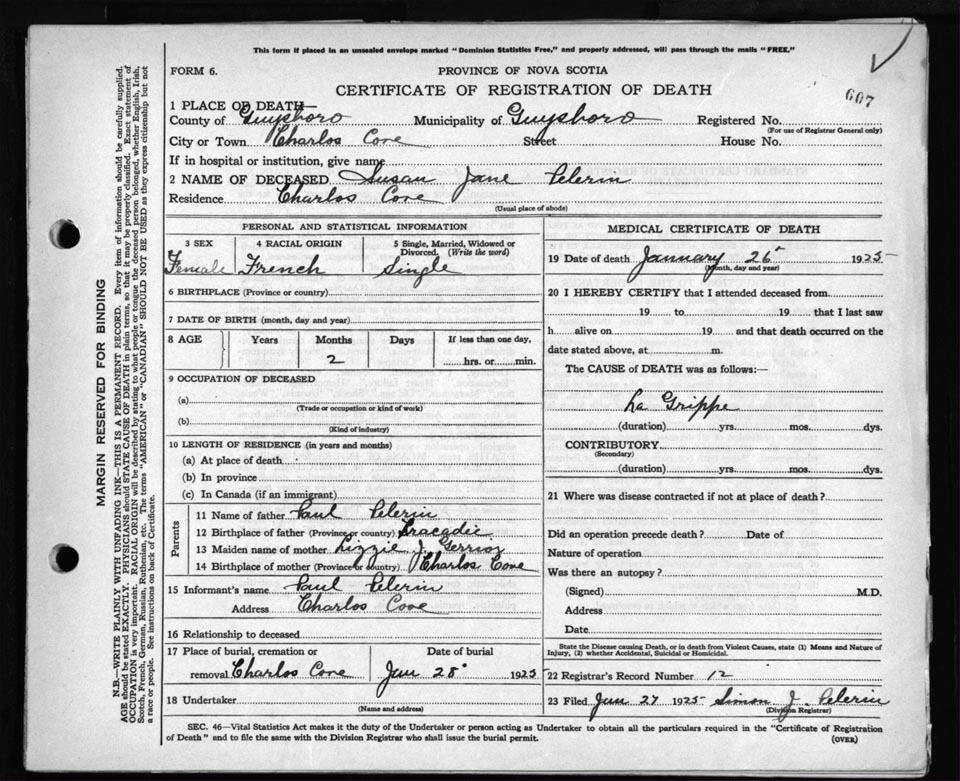 This form if placed in an unsealed envelope marked "Dominion Statistics Free," and properly addressed, will pass through the mails "FREE."
FORM 6.
PROVINCE OF NOVA SCOTIA
CERTIFICATE OF REGISTRATION OF DEATH
607
1 PLACE OF DEATH—
County of Guysboro Municipality of Guysboro Registered No.
(For use of Registrar General only)
City or Town Charlos Cove Street House No.
If in hospital or institution, give name
2 NAME OF DECEASED Susan Jane Pelerin
Residence Charlos Cove
(Usual place of abode)
PERSONAL AND STATISTICAL INFORMATION
3 SEX 4 RACIAL ORIGIN 5 Single, Married, Widowed or Divorced. (Write the word)
Female French Single
6 BIRTHPLACE (Province or country)
7 DATE OF BIRTH (month, day and year)
8 AGE Years Months Days If less than one day,
2 hrs. or min.
9 OCCUPATION OF DECEASED
(a)
(Trade or occupation or kind of work)
(b)
(Kind of industry)
10 LENGTH OF RESIDENCE (in years and months)
(a) At place of death
(b) In province
(c) In Canada (if an immigrant)
Parents
11 Name of father Paul Pelerin
12 Birthplace of father (Province or country) Tracadie
13 Maiden name of mother Lizzie J.
14 Birthplace of mother (Province or country) Charlos Cove
15 Informant's name Paul Pelerin
Address Charlos Cove
16 Relationship to deceased
17 Place of burial, cremation or removal Charlos Cove
Date of burial
Jan 28 1925
18 Undertaker
(Name and address)
MEDICAL CERTIFICATE OF DEATH
19 Date of death January 26 1925
(Month, day and year)
20 I HEREBY CERTIFY that I attended deceased from
19 to 19 that I last saw
h alive on 19 and that death occurred on the
date stated above, at m.
The CAUSE of DEATH was as follows:—
La Grippe
(duration) yrs. mos. dys.
CONTRIBUTORY
(Secondary)
(duration) yrs. mos. dys.
21 Where was disease contracted if not at place of death?
Did an operation precede death? Date of
Nature of operation
Was there an autopsy?
(Signed) M.D.
Address
Date
State the Disease causing Death, or in death from Violent Causes, state (1) Means and Nature of
Injury, (2) whether Accidental, Suicidal or Homicidal.
22 Registrar's Record Number 12
23 Filed Jan 27 1925 Simon J. Pelerin
(Division Registrar)
SEC. 46—Vital Statistics Act makes it the duty of the Undertaker or person acting as Undertaker to obtain all the particulars required in the "Certificate of Registration
of Death" and to file the same with the Division Registrar who shall issue the burial permit.
(OVER)
MARGIN RESERVED FOR BINDING
N.B.—WRITE PLAINLY WITH UNFADING INK—THIS IS A PERMANENT RECORD. Every item of information should be carefully supplied.
AGE should be stated EXACTLY. PHYSICIANS should STATE CAUSE OF DEATH in plain terms, so that it may be properly classified. Exact statement of
OCCUPATION is very important. RACIAL ORIGIN will be described by stating to what people or tongue the deceased person belonged, whether English, Irish,
Scotch, French, German, Russian, Ruthenian, etc. The terms "AMERICAN" or "CANADIAN" SHOULD NOT BE USED as they express citizenship but not
a race or people. See instructions on back of Certificate.